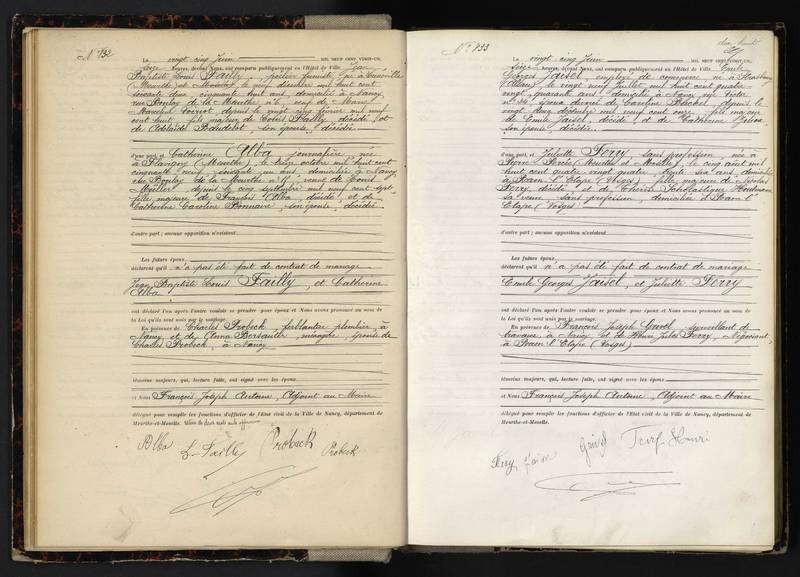 N° 832
Le vingt cinq Juin MIL NEUF CENT VINGT-UN,
seize heures, devant Nous, ont comparu publiquement en l'Hôtel de Ville, Jean
Baptiste Louis Failly, potier fumiste, né à
(Meurthe et Moselle) le neuf décembre mil huit cent
soixante deux, cinquante huit ans, domicilié à Nancy,
rue de la Meurthe n° 6, veuf de Marie
depuis le vingt cinq février mil neuf
cent huit, fils majeur de Louis Failly, décédé et
de Adélaïde Baudelot son épouse, décédée
d'une part, et Catherine Alba, journalière, née
à Flavigny (Meurthe) le treize octobre mil huit cent
cinquante neuf, soixante un ans, domiciliée à Nancy,
rue de la Meurthe n° 6, veuve de Louis
Muller depuis le cinq septembre mil neuf cent sept,
fille majeure de François Alba, décédé et de
Catherine Caroline son épouse, décédée
d'autre part ; aucune opposition n'existant.
Les futurs époux
déclarent qu'il n'a pas été fait de contrat de mariage
Jean Baptiste Louis Failly, et Catherine
Alba.
ont déclaré l'un après l'autre vouloir se prendre pour époux et Nous avons prononcé au nom de
la Loi qu'ils sont unis par le mariage.
En présence de Charles Probeck, ferblantier plombier, à
Nancy, et de Anna ménagère, épouse de
Charles Probeck, à Nancy
témoins majeurs, qui, lecture faite, ont signé avec les époux
et Nous François Joseph Antoine, Adjoint au Maire
délégué pour remplir les fonctions d'officier de l'Etat civil de la Ville de Nancy, département de
Meurthe-et-Moselle.
Alba L. Failly Probeck Probeck
N° 833
Le vingt cinq Juin MIL NEUF CENT VINGT-UN,
seize heures, devant Nous, ont comparu publiquement en l'Hôtel de Ville, Emile
Georges Jaisel, employé de commerce, né à Strasbourg
(Alsace) le vingt neuf Juillet mil huit cent quatre
vingt, quarante ans, domicilié à Nancy, rue Victor
n° 34, époux divorcé de Caroline depuis le
vingt deux décembre mil neuf cent onze, fils majeur
de Emile Jaisel, décédé et de Catherine
son épouse, décédée.
d'une part, et Juliette Ferry, sans profession, née à
Pierre Percée (Meurthe et Moselle), le cinq août mil
huit cent quatre vingt quatre, trente six ans, domiciliée
à Raon l'Etape (Vosges), fille majeure de Nicolas
Ferry, décédé et de Thérèse Scholastique
sa veuve, sans profession, domiciliée à Raon l'
Etape (Vosges)
d'autre part ; aucune opposition n'existant.
Les futurs époux
déclarent qu'il n'a pas été fait de contrat de mariage
Emile Georges Jaisel, et Juliette Ferry
ont déclaré l'un après l'autre vouloir se prendre pour époux et Nous avons prononcé au nom de
la Loi qu'ils sont unis par le mariage.
En présence de François Joseph Grivel, surveillant de
travaux, à Nancy et de Henri Jules Ferry, Négociant,
à Raon l'Etape (Vosges)
témoins majeurs, qui, lecture faite, ont signé avec les époux
et Nous François Joseph Antoine, Adjoint au Maire
délégué pour remplir les fonctions d'officier de l'Etat civil de la Ville de Nancy, département de
Meurthe-et-Moselle.
Ferry Grivel Ferry Henri